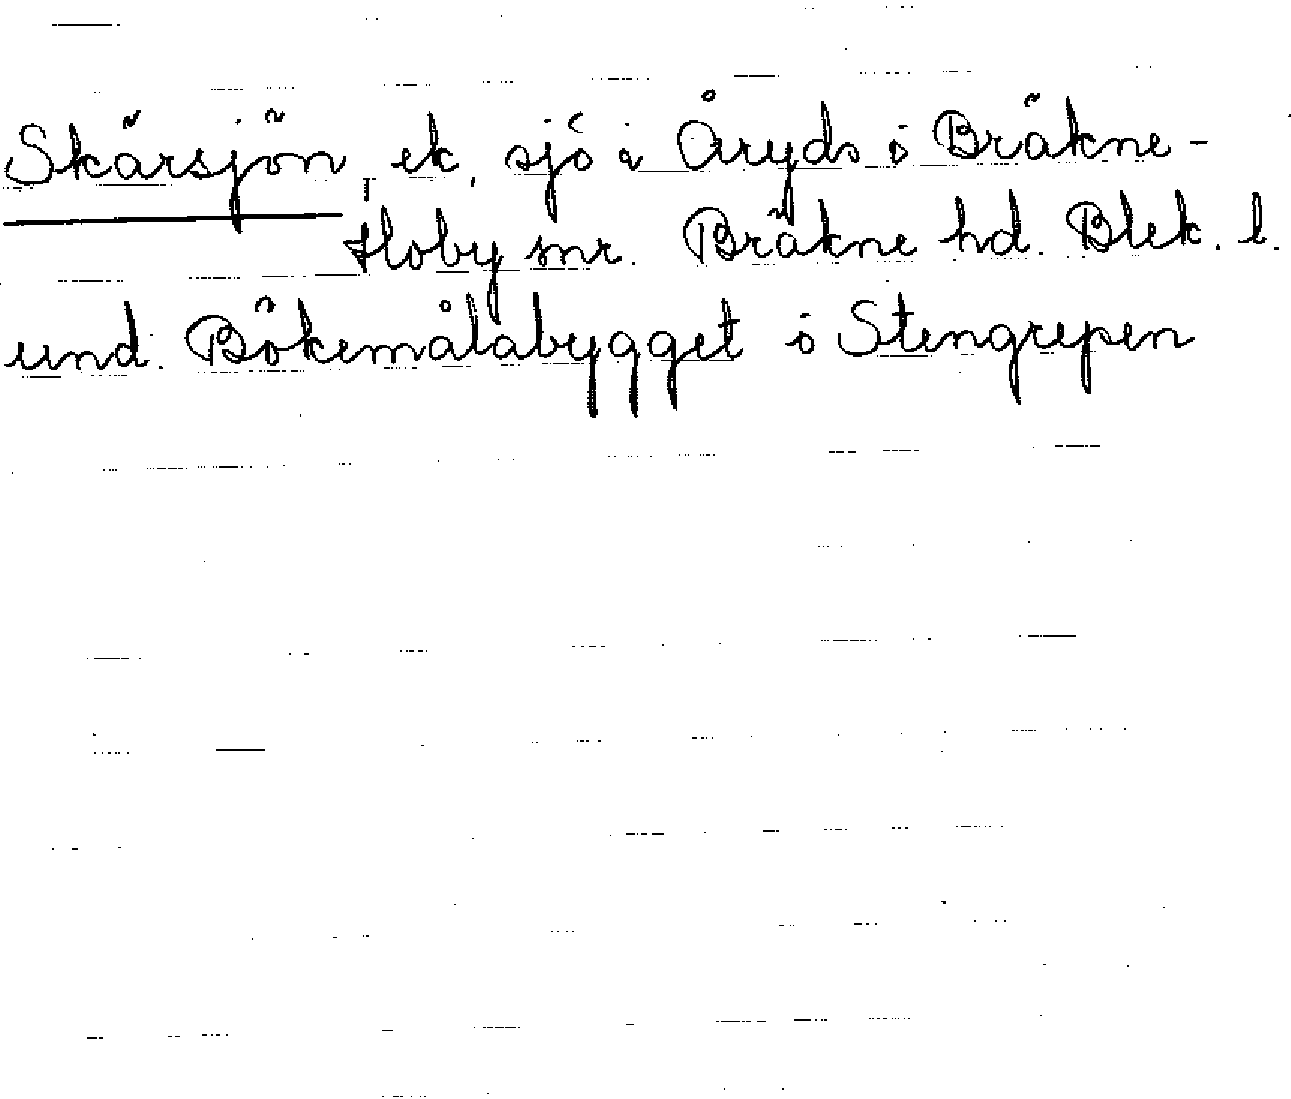 Skärsjön, ek. sjö i Åryds ö Bräkne-
Hoby snr. Bräkne hd. Blek. l.
und. Bökemålabygget ö Stengrepen